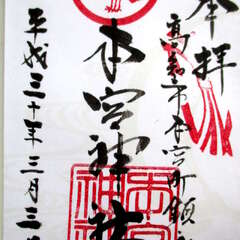 奉拝
高知市本宮町鎮
本宮神社
平成三十年三月三
本宮
神社